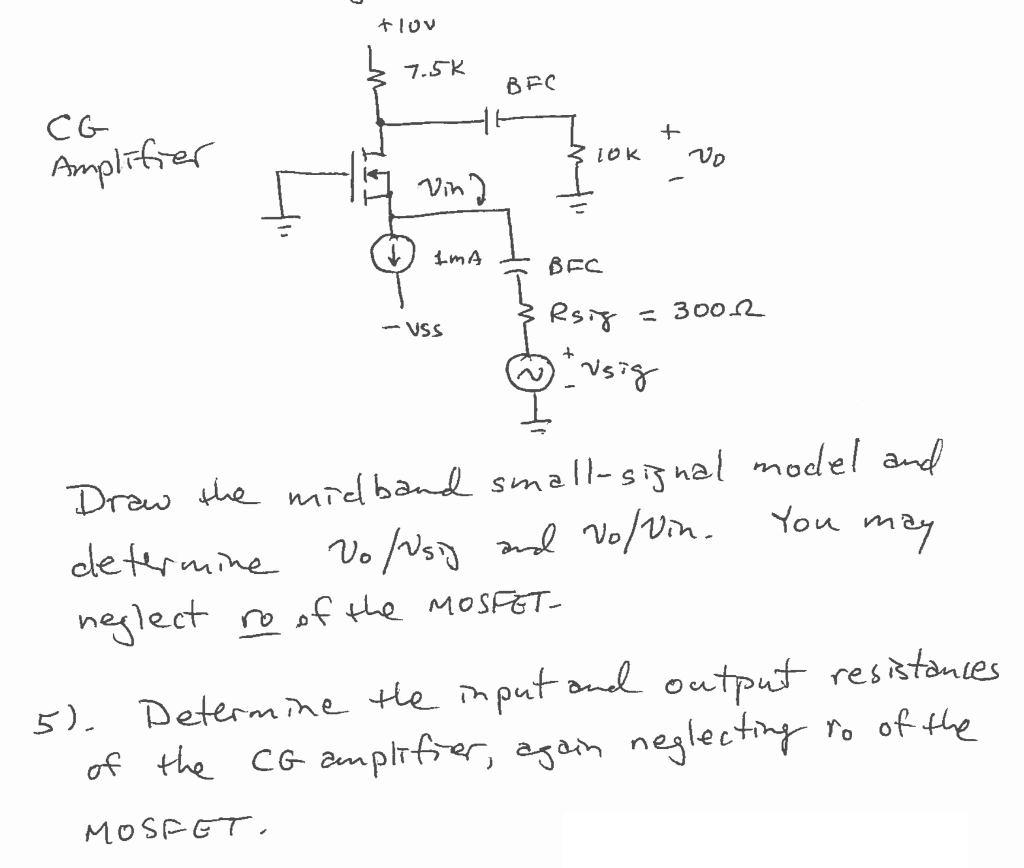 +10V
7.5K
BFC
CG
Amplifier
10K
+
vo
-
Vin
1mA
BFC
Rsig = 300Ω
-VSS
+
vsig
-
Draw the midband small-signal model and
determine vo/vsig and vo/vin. You may
neglect ro of the MOSFET.
5). Determine the input and output resistances
of the CG amplifier, again neglecting ro of the
MOSFET.